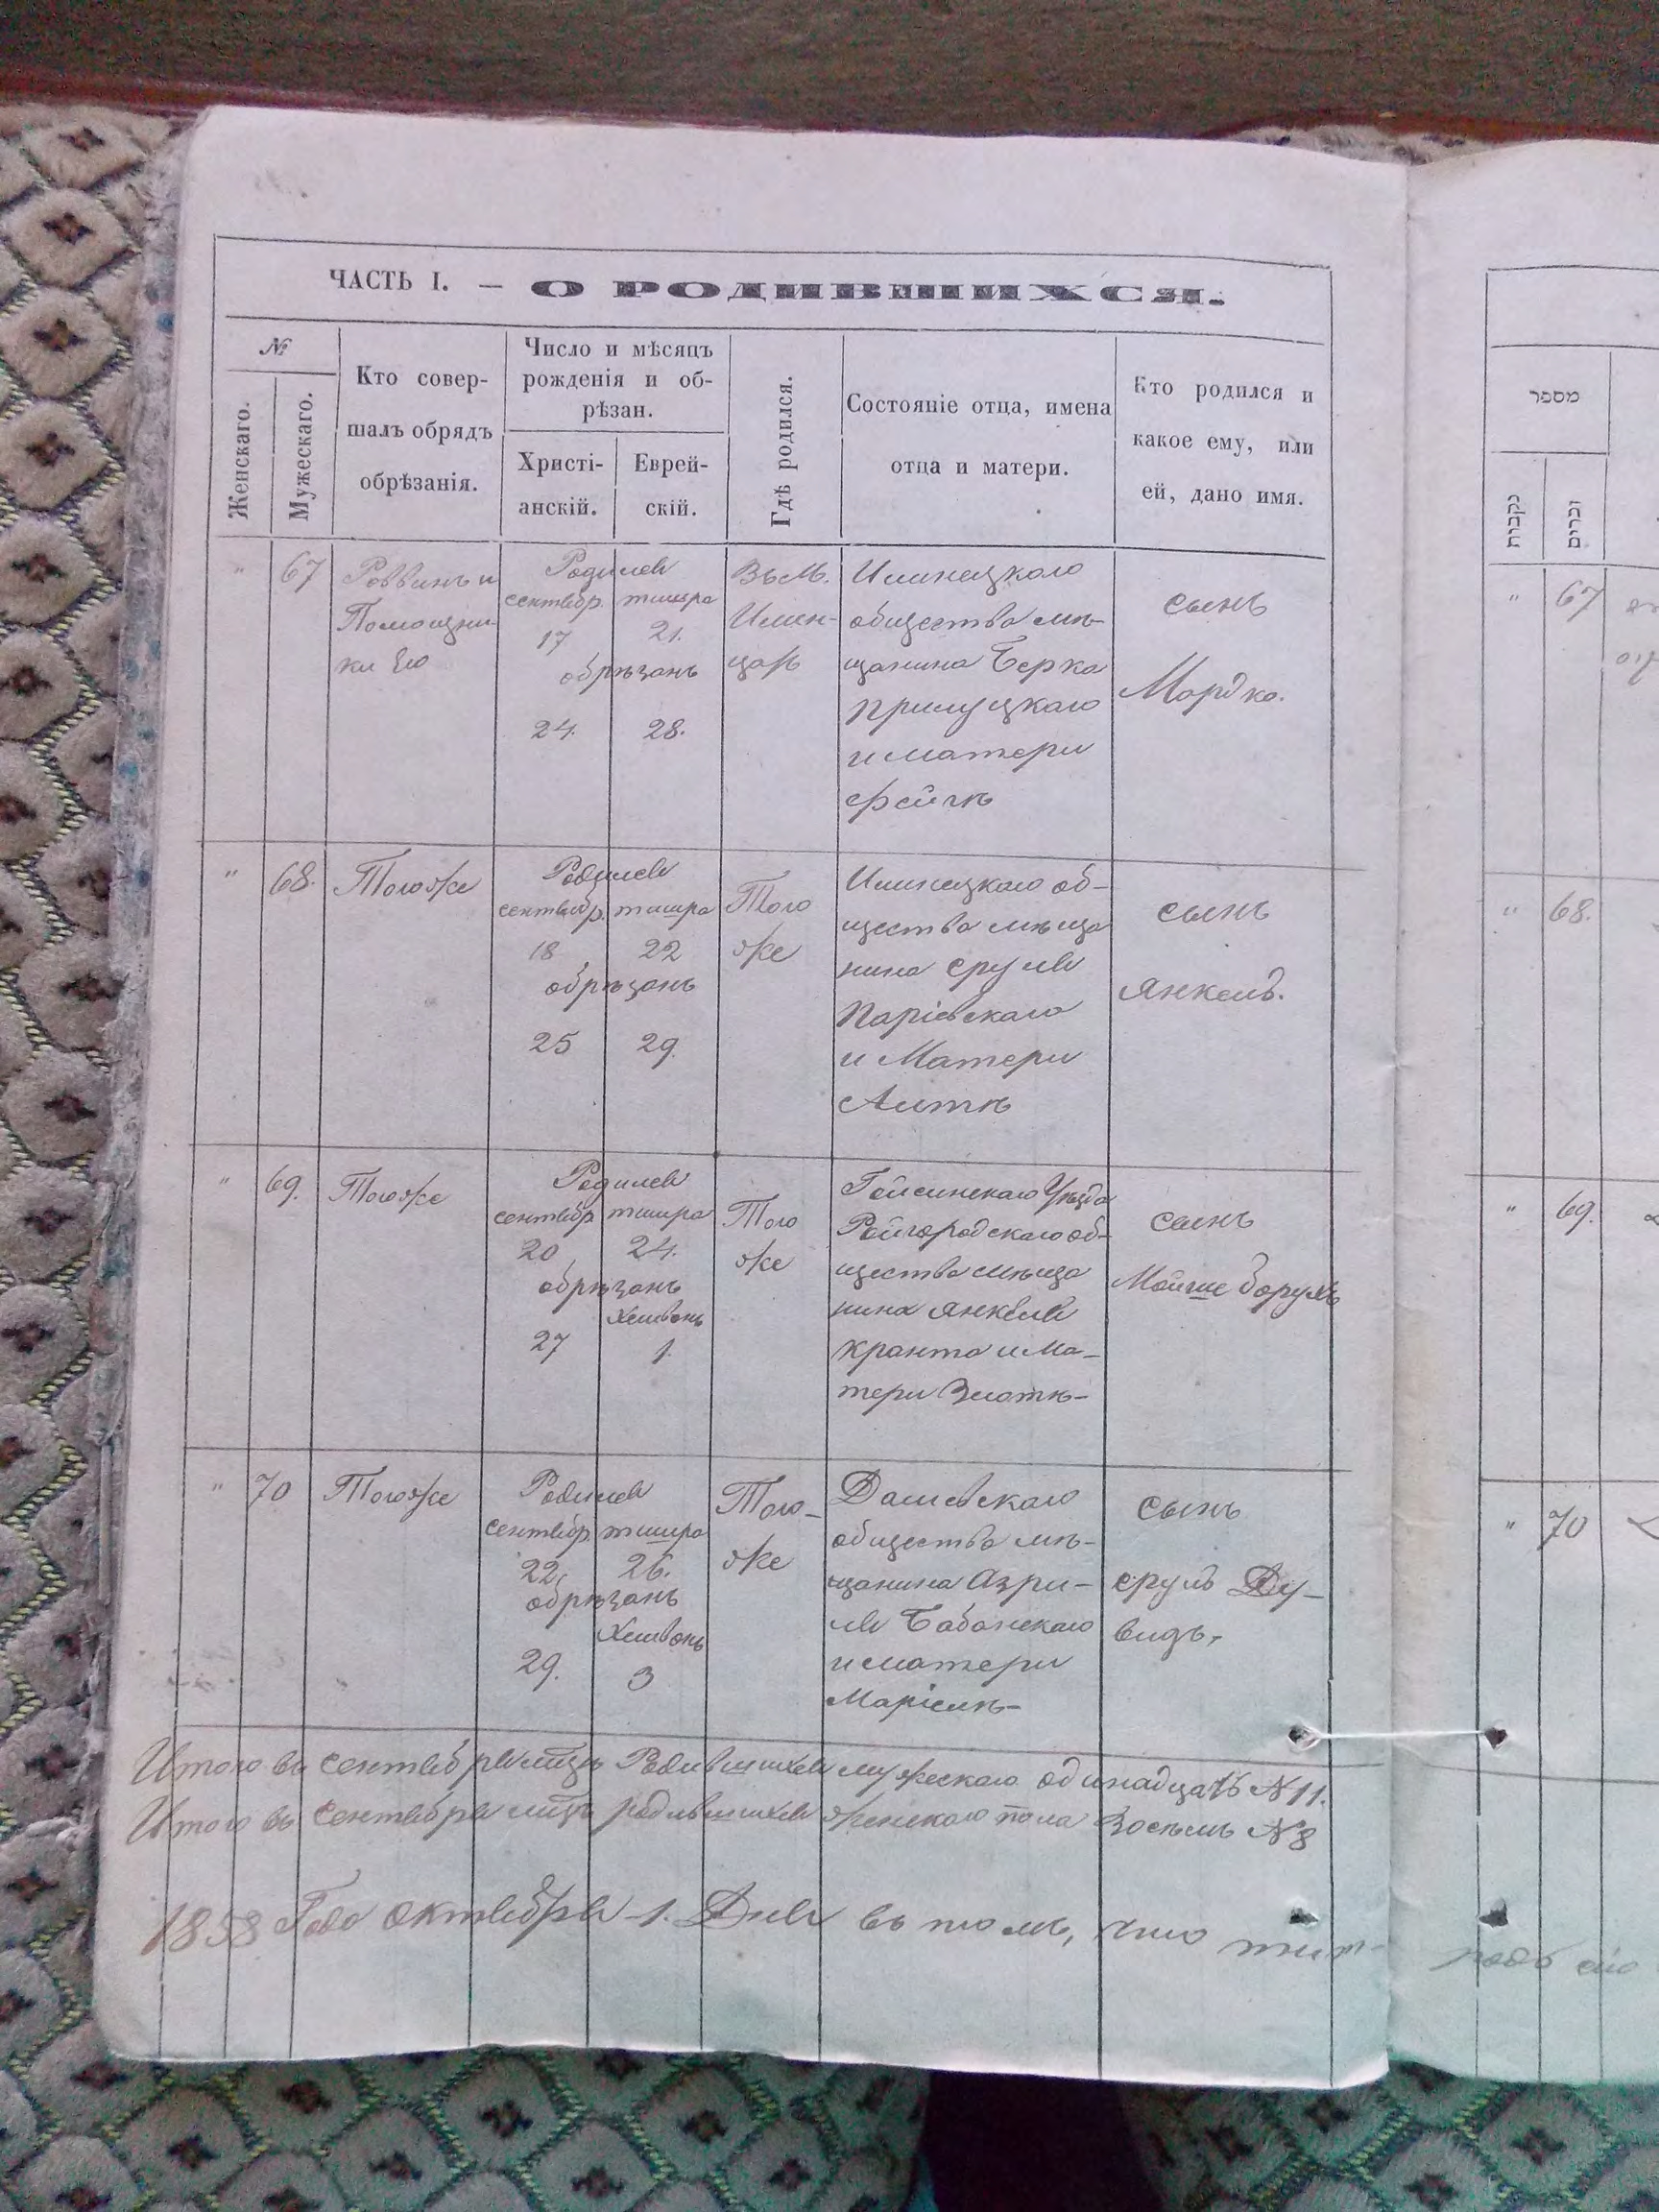 ЧАСТЬ I. — О РОДИВШИХСЯ.
№
Женскаго.
Мужескаго.
Кто совер-
шалъ обрядъ
обрѣзанія.
Число и мѣсяцъ
рожденія и об-
рѣзан.
Христі-
анскій.
Еврей-
скій.
Гдѣ родился.
Состояніе отца, имена
отца и матери.
Кто родился и
какое ему, или
ей, дано имя.
" 67
Раввинъ и
Помощни-
ки Его
Родился
сентябр. тишра
17 21.
обрѣзанъ
24. 28.
Въ М.
Илин-
цахъ
Илинецкаго
общества мѣ-
щанина Берка
Прилуцкаго
и матери
Фейгѣ
сынъ
Мардко.
" 68.
Тогоже
Родился
сентябр. тишра
18 22
обрѣзанъ
25 29.
Того
же
Илинецкаго об-
щества мѣща
нина Сруля
Паріевскаго
и Матери
Алтѣ
сынъ
Янкель.
" 69.
Тогоже
Родился
сентябр. тишра
20 24.
обрѣзанъ
Хешванъ
27 1.
Того
же
Гайсинскаго Уѣзда
Райгородскаго об-
щества мѣща
нина Янкеля
Кранта и Ма-
тери Златѣ-
сынъ
Мойше Борухъ
" 70
Тогоже
Родился
сентябр. тишра
22, 26.
обрѣзанъ
Хешванъ
29. 3
Того-
же
Дашевскаго
общества мѣ-
щанина Азри-
ля Бабанскаго
и матери
Маріемѣ-
сынъ
Сруль Ду-
видъ,
Итого въ сентябрѣ мцѣ Родившихся мужескаго одинадцать № 11.
Итого въ сентябрѣ мцѣ родившихся женскаго пола Восемь № 8
1858 Года октября 1. Дня въ томъ, что
מספר
נקבות
זכרים
" 67
" 68.
" 69.
" 70